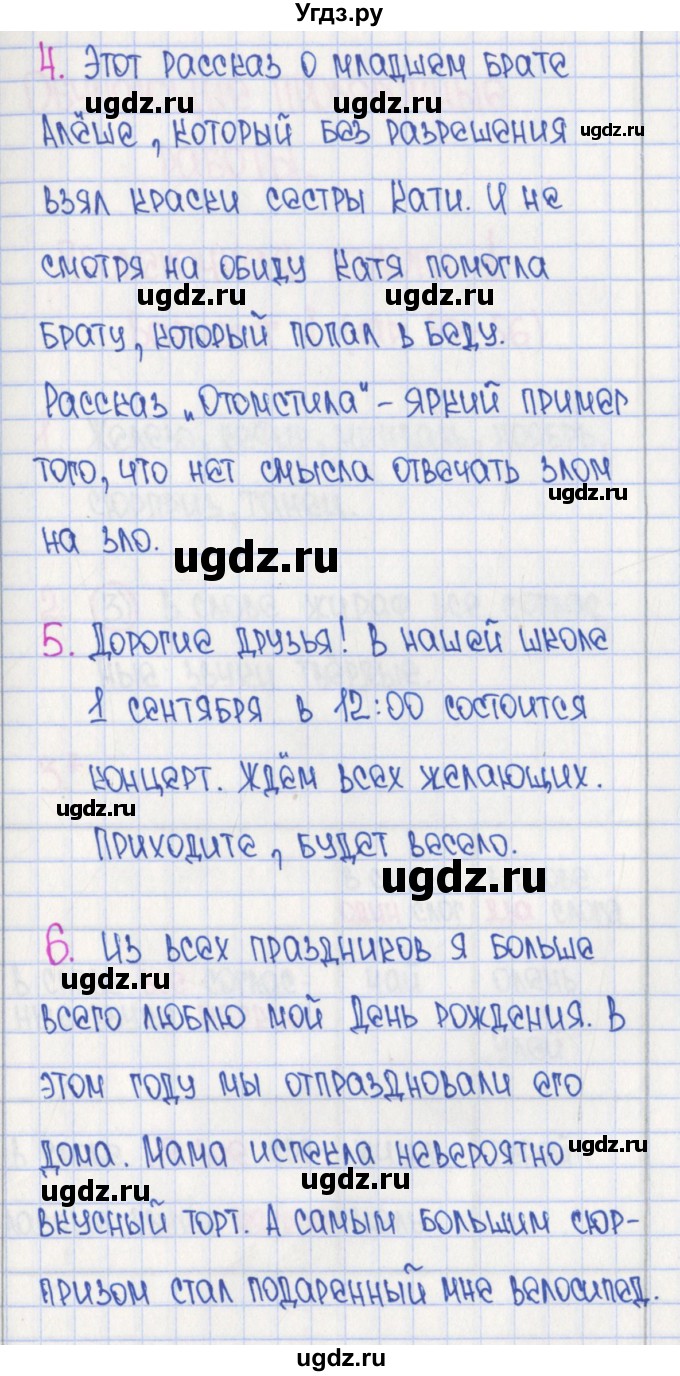 Угдз.ру
4. Этот рассказ о младшем брате
ugdz.ru ugdz.ru
Алёше, который без разрешения
ugdz.ru
взял краски сестры Кати. И не
смотря на обиду Катя помогла
ugdz.ru ugdz.ru
брату, который попал в беду.
Рассказ „Отомстила" – яркий пример
того, что нет смысла отвечать злом
ugdz.ru
на зло.
ugdz.ru
5. Дорогие друзья! В нашей школе
1 сентября в 12:00 состоится
концерт. Ждём всех желающих.
ugdz.ru
Приходите, будет весело.
ugdz.ru
6. Из всех праздников я больше
ugdz.ru
всего люблю мой День рождения. В
этом году мы отпраздновали его
дома. Мама испекла невероятно
ugdz.ru
ugdz.ru ugdz.ru
вкусный торт. А самым большим сюр-
призом стал подаренный мне велосипед.
ugdz.ru